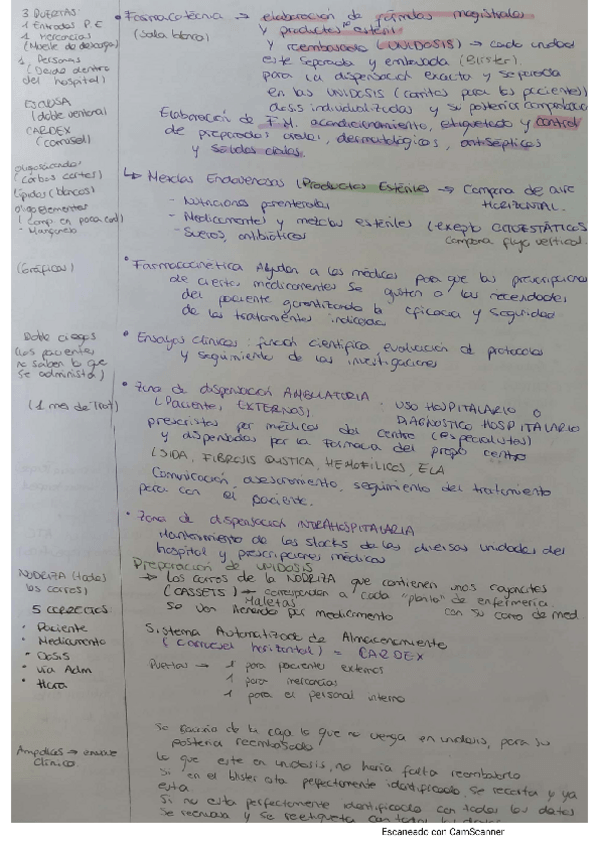 3 PUERTAS:
1 Entradas P.E
1 Mercancias
(Muelle de descarga)
1, Personas
(Desde dentro
del hospital)
ESCLUSA
(doble ventana)
CARDEX
(carrusel)
oligosacaridos
(carbos cortes)
lípidos (blancos)
oligoelementos
(comp en poca cant)
- Manganeso
(Gráficas)
Doble ciegos
(los pacientes
no saben lo que
se administra)
(1 mes de Trat)
NODRIZA (todos
los carros)
5 CORRECTOS:
• Paciente
• Medicamento
• Dosis
• via Adm
• Hora
Ampollas → envase
Clinico.
• Farmacotecnia → elaboración de fórmulas magistrales
(Sala blanca) y productos no estéril
y reembasado (UNIDOSIS) → cada unidad
este separada y embasada (Blister).
para la dispensación exacta y separada
en las UNIDOSIS (carritos para los pacientes)
dosis individualizadas y su posterior comprobación
Elaboración de F.M. acondicionamiento, etiquetado y control
de preparados orales, dermatológicos, antisépticos
y solidos orales.
↳ Mezclas Endovenosas (Productos Estériles) → Campana de aire
HORIZONTAL.
- Nutriciones parenterales
- Medicamentos y mezclas estériles (exepto CITOESTÁTICOS
campana flujo vertical.
- Sueros, antibióticos
• Farmacocinetica Ayudan a los médicos para que las prescripciones
de ciertos medicamentos se ajusten a las necesidades
del paciente garantizando la eficacia y seguridad
de los tratamientos indicados
• Ensayos clinicos: función científica, evaluación de protocolos
y seguimiento de las investigaciones
• Zona de dispensación AMBULATORIA
(Pacientes EXTERNOS) : USO HOSPITALARIO o
DIAGNOSTICO HOSPITALARIO
prescritos por médicos del centro (especialistas)
y dispensados por la Farmacia del propio centro
(SIDA, FIBROSIS QUISTICA, HEMOFILICOS, ELA
Comunicación, asesoramiento, seguimiento del tratamiento
para con el paciente.
• Zona de dispensación INTRAHOSPITALARIA
Mantenimiento de los stocks de las diversas unidades del
hospital y prescripciones médicas
Preparación de UNIDOSIS
→ Los carros de la NODRIZA que contienen unos cajoncitos
(CASSETS) → corresponden a cada "planta" de enfermeria.
Maletas
se van llenando por medicamento con su carro de med.
Sistema Automatizado de Almacenamiento
(Carrusel horizontal) = CARDEX
Puertas → 1 para pacientes externos
1 para mercancias
1 para el personal interno
se saca de la caja lo que no venga en unidosis, para su
posterior reembasado
Lo que este en unidosis, no haria falta reembasarlo
Si en el blister esta perfectamente identificado, se recorta y ya
esta
Si no esta perfectamente identificado con todos los datos
se reenvasa y se reetiqueta con todos los datos
Escaneado con CamScanner